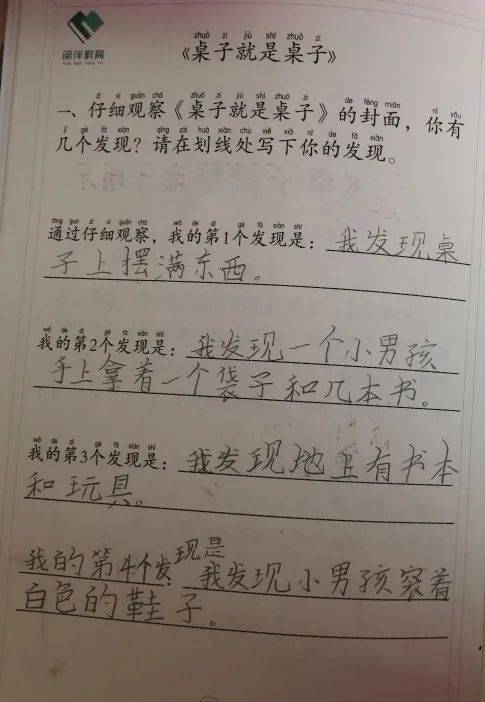 阅伴教育
zhuō zi jiù shì zhuō zi
《桌子就是桌子》
zǐ xì guān chá zhuō zi jiù shì zhuō zi de fēng miàn nǐ yǒu
一、仔细观察《桌子就是桌子》的封面，你有
jǐ gè fā xiàn qǐng zài huà xiàn chù xiě xià nǐ de fā xiàn
几个发现？请在划线处写下你的发现。
tōng guò zǐ xì guān chá wǒ de dì gè fā xiàn shì
通过仔细观察，我的第1个发现是：我发现桌
子上摆满东西。
wǒ de dì gè fā xiàn shì
我的第2个发现是：我发现一个小男孩
手上拿着一个袋子和几本书。
wǒ de dì gè fā xiàn shì
我的第3个发现是：我发现地上有书本
和玩具。
我的第4个发现是：我发现小男孩穿着
白色的鞋子。